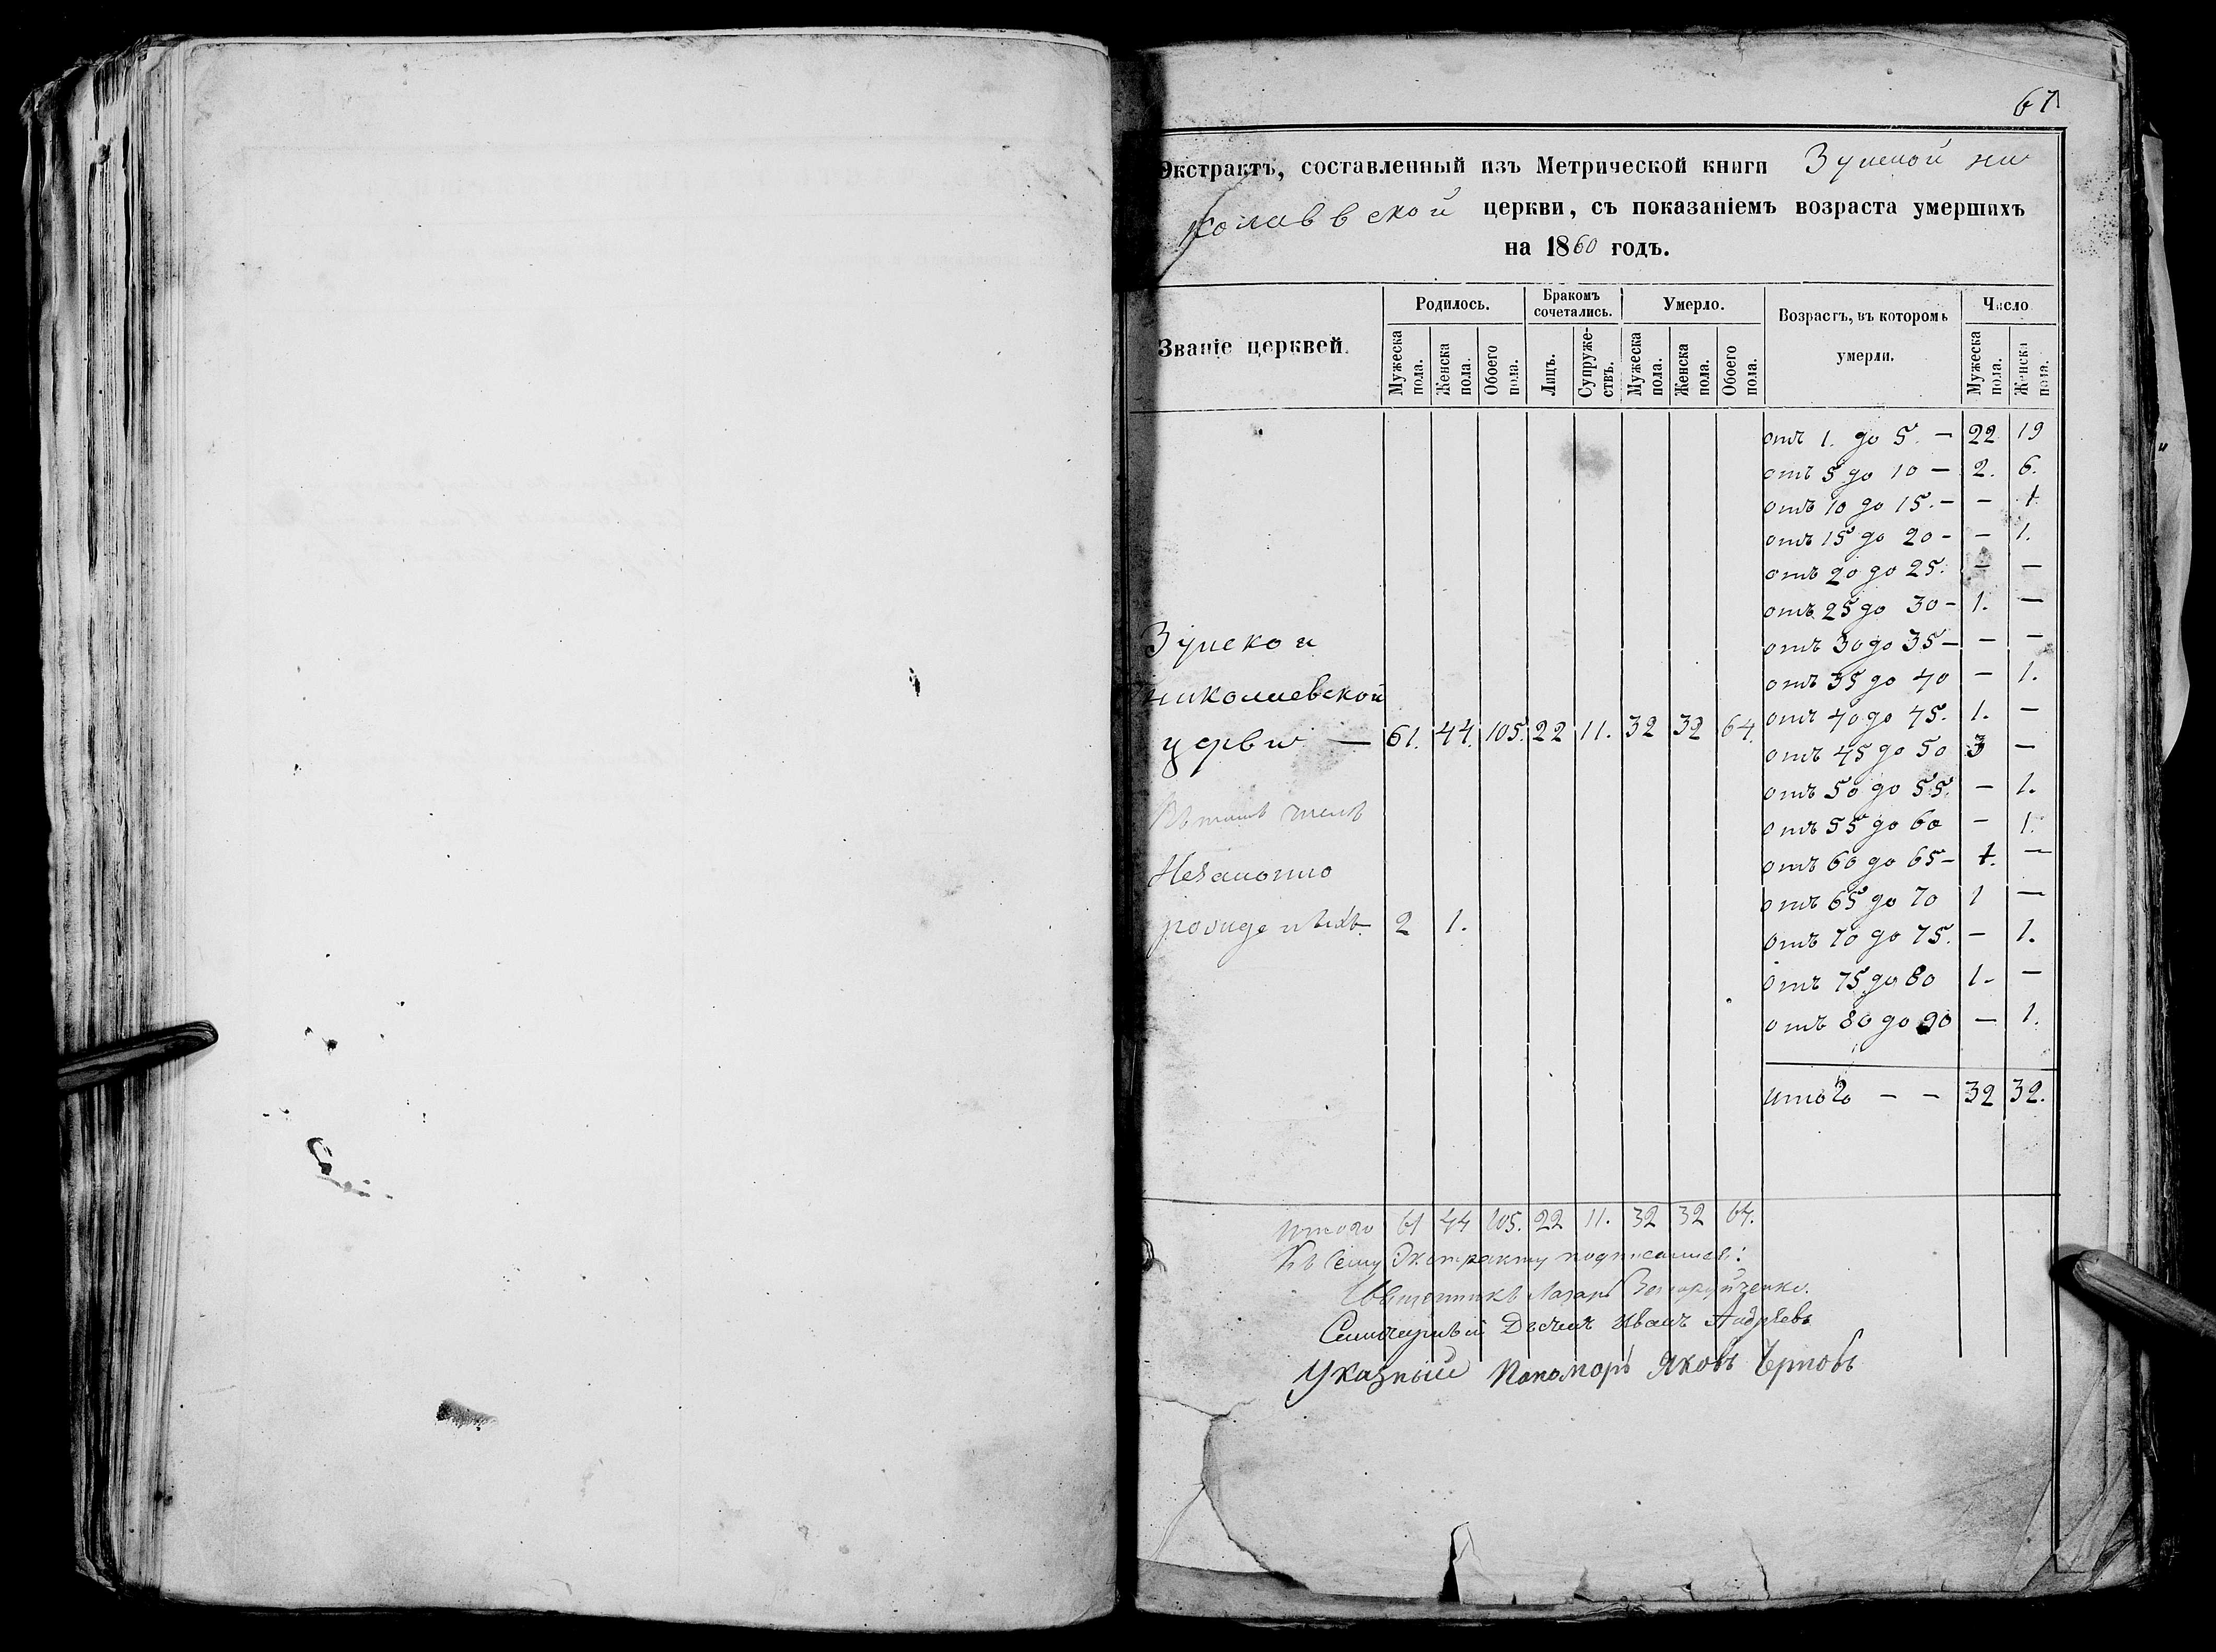 67
Экстрактъ, составленный изъ Метрической книги Зунской Ни
колаевской церкви, съ показаніемъ возраста умершихъ
на 1860 годъ.
Званіе церквей. Родилось. Бракомъ сочетались. Умерло. Возрастъ, въ которомъ умерли. Число
Мужеска пола. Женска пола. Обоего пола. Лицъ. Супружествъ. Мужеска пола. Женска пола. Обоего пола. Мужеска пола. Женска пола.
отъ 1. до 5. — 22 19
отъ 5 до 10 — 2. 6.
отъ 10 до 15. — — 1
отъ 15 до 20 - — 1.
отъ 20 до 25. — —
отъ 25 до 30 - 1. —
отъ 30 до 35 — — —
отъ 35 до 40 — 1.
отъ 40 до 45. 1. —
отъ 45 до 50 3 —
отъ 50 до 55. — 1.
отъ 55 до 60 — 1.
отъ 60 до 65 — 1. —
отъ 65 до 70 1 —
отъ 70 до 75. — 1.
отъ 75 до 80 1. —
отъ 80 до 90 — 1.
итого — — 32 32.
Зунской
Николаевской
церкви — 61. 44. 105. 22 11. 32 32 64.
Въ томъ числѣ
Незаконно
рожденныхъ 2 1.
Итого 61 44 105. 22 11. 32 32 64.
Къ сему Экстракту подписались:
Священникъ Лазарь
Дьячекъ Иванъ Андреевъ
Указный Пономарь Яковъ Черновъ